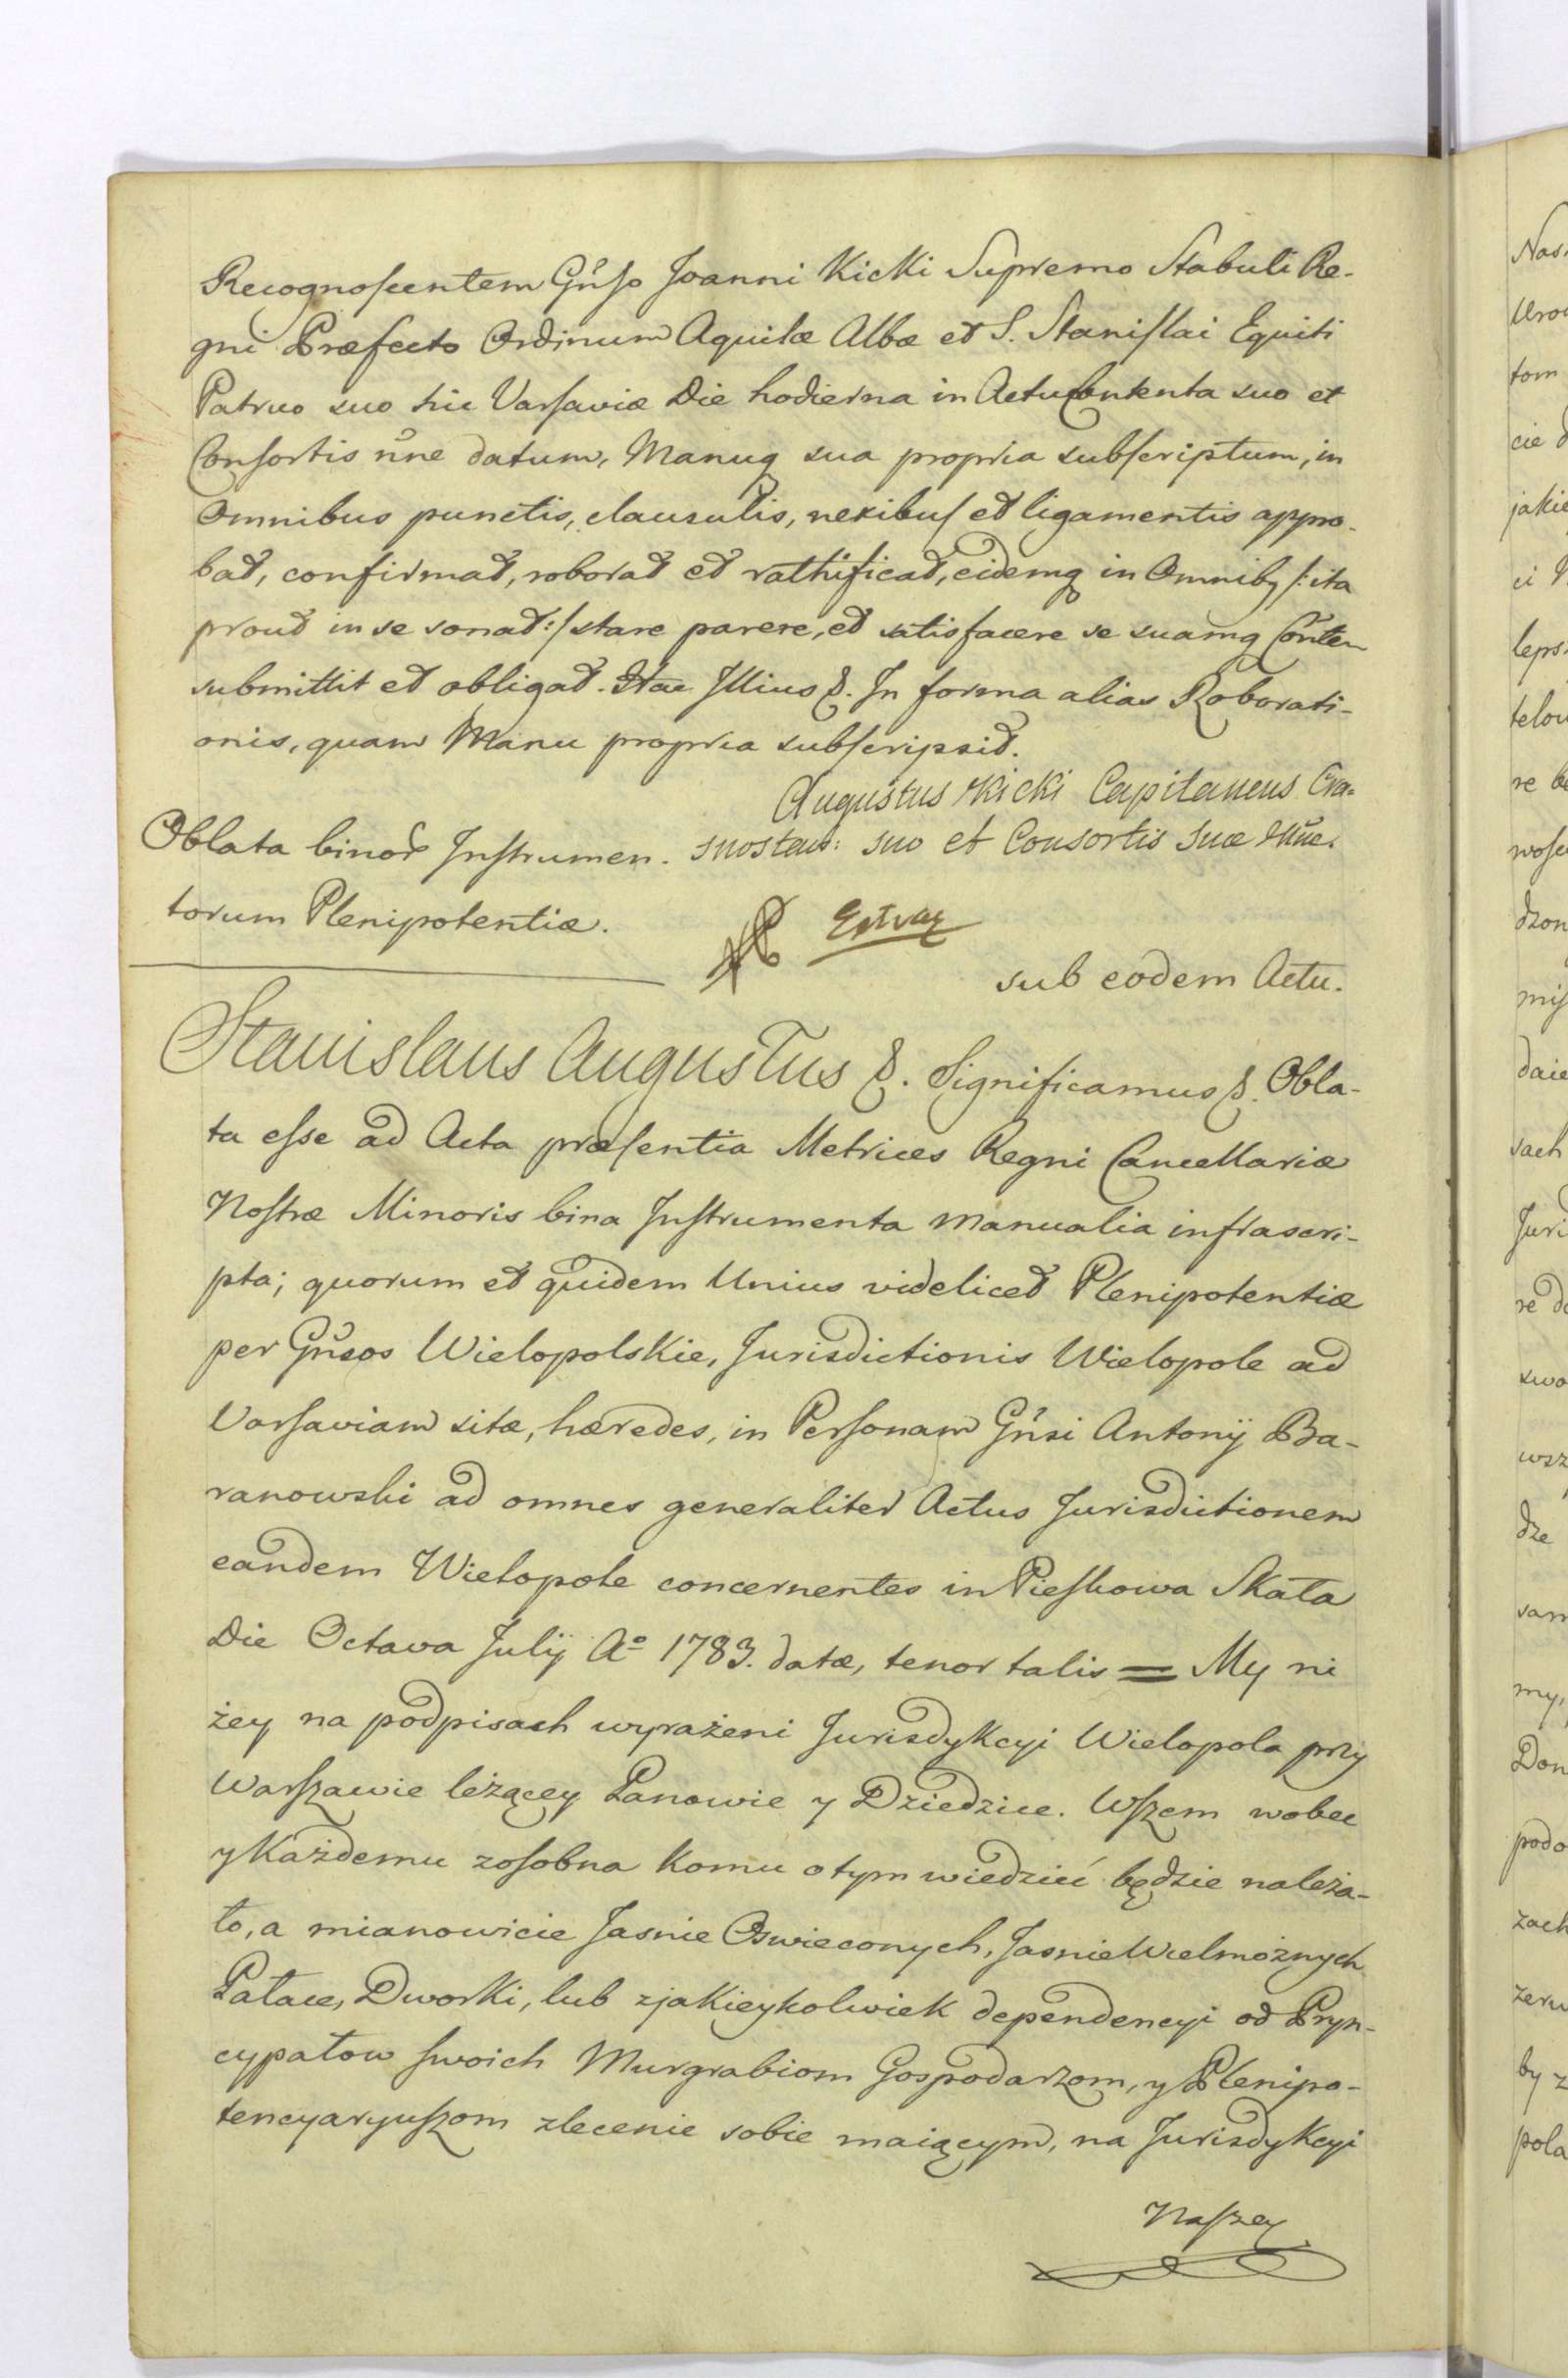 Recognoscentem Gnso Joanni Kicki Supremo Stabuli Re-
gni Præfecto Ordinum Aquilæ Albæ et S. Stanislai Equiti
Patruo suo hic Varsaviæ Die hodierna in Actu Contenta suo et
Consortis nñe datum, Manuq sua propria subscriptum, in
Omnibus punctis, clausulis, nexibus et ligamentis appro-
bat, confirmat, roborat et rathificat, eidemq in Omnibq /: ita
prout in se sonat :/ stare parere, et satisfacere se suamq Conten
submittit et obligat. Hac Illius &. In forma alias Roborati-
onis, quam Manu propria subscripsit.
Augustus Kicki Capitaneus Cra-
snostaus: suo et Consortis Suæ Nñe.
Oblata binor Instrumen-
torum Plenipotentiæ.
sub eodem Actu.
Stanislaus Augustus &. Significamus &. Obla-
ta esse ad Acta præsentia Metrices Regni Cancellariæ
Nostræ Minoris bina Instrumenta Manualia infrascri-
pta; quorum et quidem Unius videlicet Plenipotentiæ
per Gnsos Wielopolskie, Jurisdictionis Wielopole ad
Varsaviam sitæ, hæredes, in Personam Gnsi Antonij Ba-
ranowski ad omnes generaliter Actus Jurisdictionem
eandem Wielopole concernentes in Pieskowa Skała
Die Octava Julij Aº 1783. datæ, tenor talis = My ni
żey na podpisach wyrażeni Jurisdykcyi Wielopola przy
Warszawie leżącey Panowie y Dziedzice. Wszem wobec
y Każdemu zosobna komu o tym wiedzieć będzie należa-
ło, a mianowicie Jasnie Oswieconych, Jasnie Wielmożnych
Pałace, Dworki, lub zjakieykolwiek dependencyi od Pryn-
cypałow swoich Murgrabiom Gospodarzom, y Plenipo-
tencyaryuszom zlecenie sobie maiącym, na Jurisdykcyi
Naszey